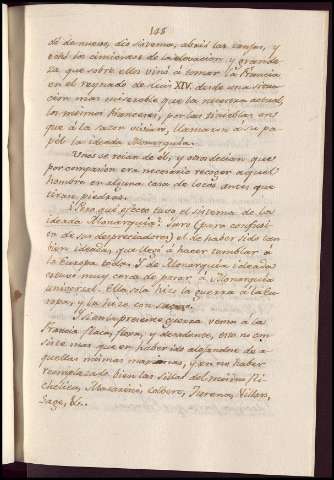 145
de de nuevo, dio sistema, abrió las zanjas, y
echó los cimientos de la elevacion, y grande
za que sobre ellos vino á tomar la Francia
en el reynado de Luis XIV. desde una situa
cion mas miserable que la nuestra actual,
los mismos Franceses, por las tinieblas en
que á la sazon vivian, llamaron á su pa
pél la ideada Monarquia.
Unos se reían de él; y otros decian que
por compasion era necesario recoger aquel
hombre en alguna casa de locos antes que
tirase piedras.
¿Pero qué efecto tuvo el sistema de la
ideada Monarquia? Jurò (para confusi
on de sus despreciadores) el de haber sido tan
bien ideada, que llegó á hacer temblar á
la Europa toda. Y de Monarquia ideada
estuvo muy cerca de pasar á Monarquia
universal. Ella sola hizo la guerra á la Eu
ropa, y la hizo con suceso.
Y si en la presente guerra vemos á la
Francia flaca, floxa, y decadente, esto no con
siste mas que en haberse alejandose de a
quellas mismas maximas, y en no haber
reemplazado bien las sillas del mismo Ri
chelieu, Mazarini, Colbert, Turena, Villars,
Sage, &c.